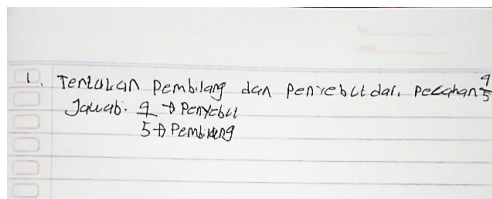 1. Tentukan Pembilang dan Penyebut dari Pecahan 9/5
Jawab: 9 → Penyebut
5 → Pembilang